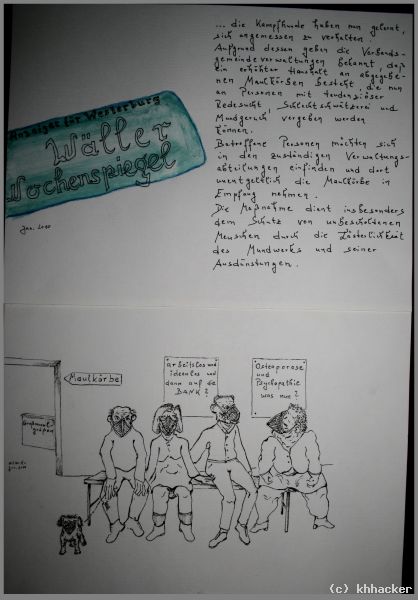 ... die Kampfhunde haben nun gelernt,
sich angemessen zu verhalten.
Aufgrund dessen geben die Verbands-
gemeindeverwaltungen bekannt, daß
ein erhöhter Haushalt an abgegebe-
nen Maulkörben besteht, die nun
an Personen mit tendenziöser
Redesucht, Schlechtschwätzerei und
Mundgeruch vergeben werden
können.
Betroffene Personen möchten sich
in den zuständigen Verwaltungs-
abteilungen einfinden und dort
unentgeltlich die Maulkörbe in
Empfang nehmen.
Die Maßnahme dient insbesonders
dem Schutz von unbescholdenen
Menschen durch die Lästerlichkeit
des Mundwerks und seiner
Ausdünstungen.
Anzeiger für Westerburg
Wäller
Wochenspiegel
Jan.
Maulkörbe
arbeitslos und
ideenlos und
dann auf de
BANK?
Osteoporose
und
Psychopathie
was nun?
(c) khhacker